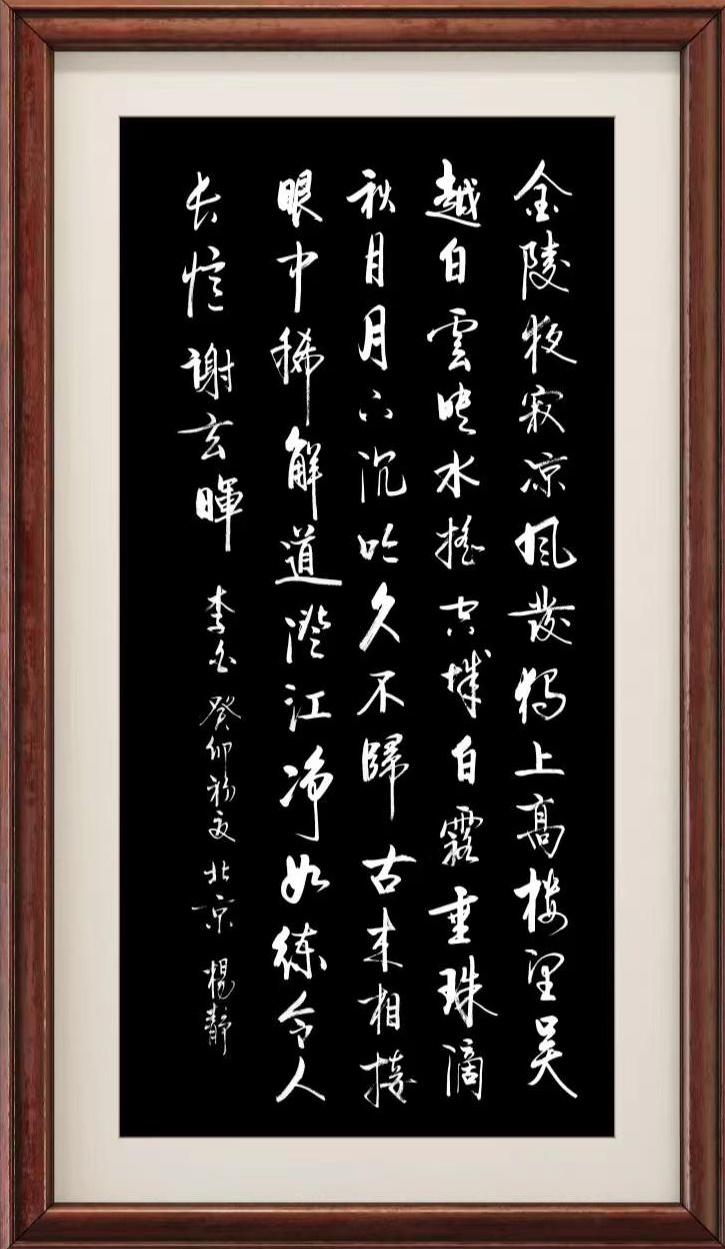 金陵夜寂涼風發獨上高楼望吴
越白雲映水摇空城白露垂珠滴
秋月月下沉吟久不歸古来相接
眼中稀解道澄江净如練令人
长憶謝玄暉 李白 癸卯初夏 北京 楊静